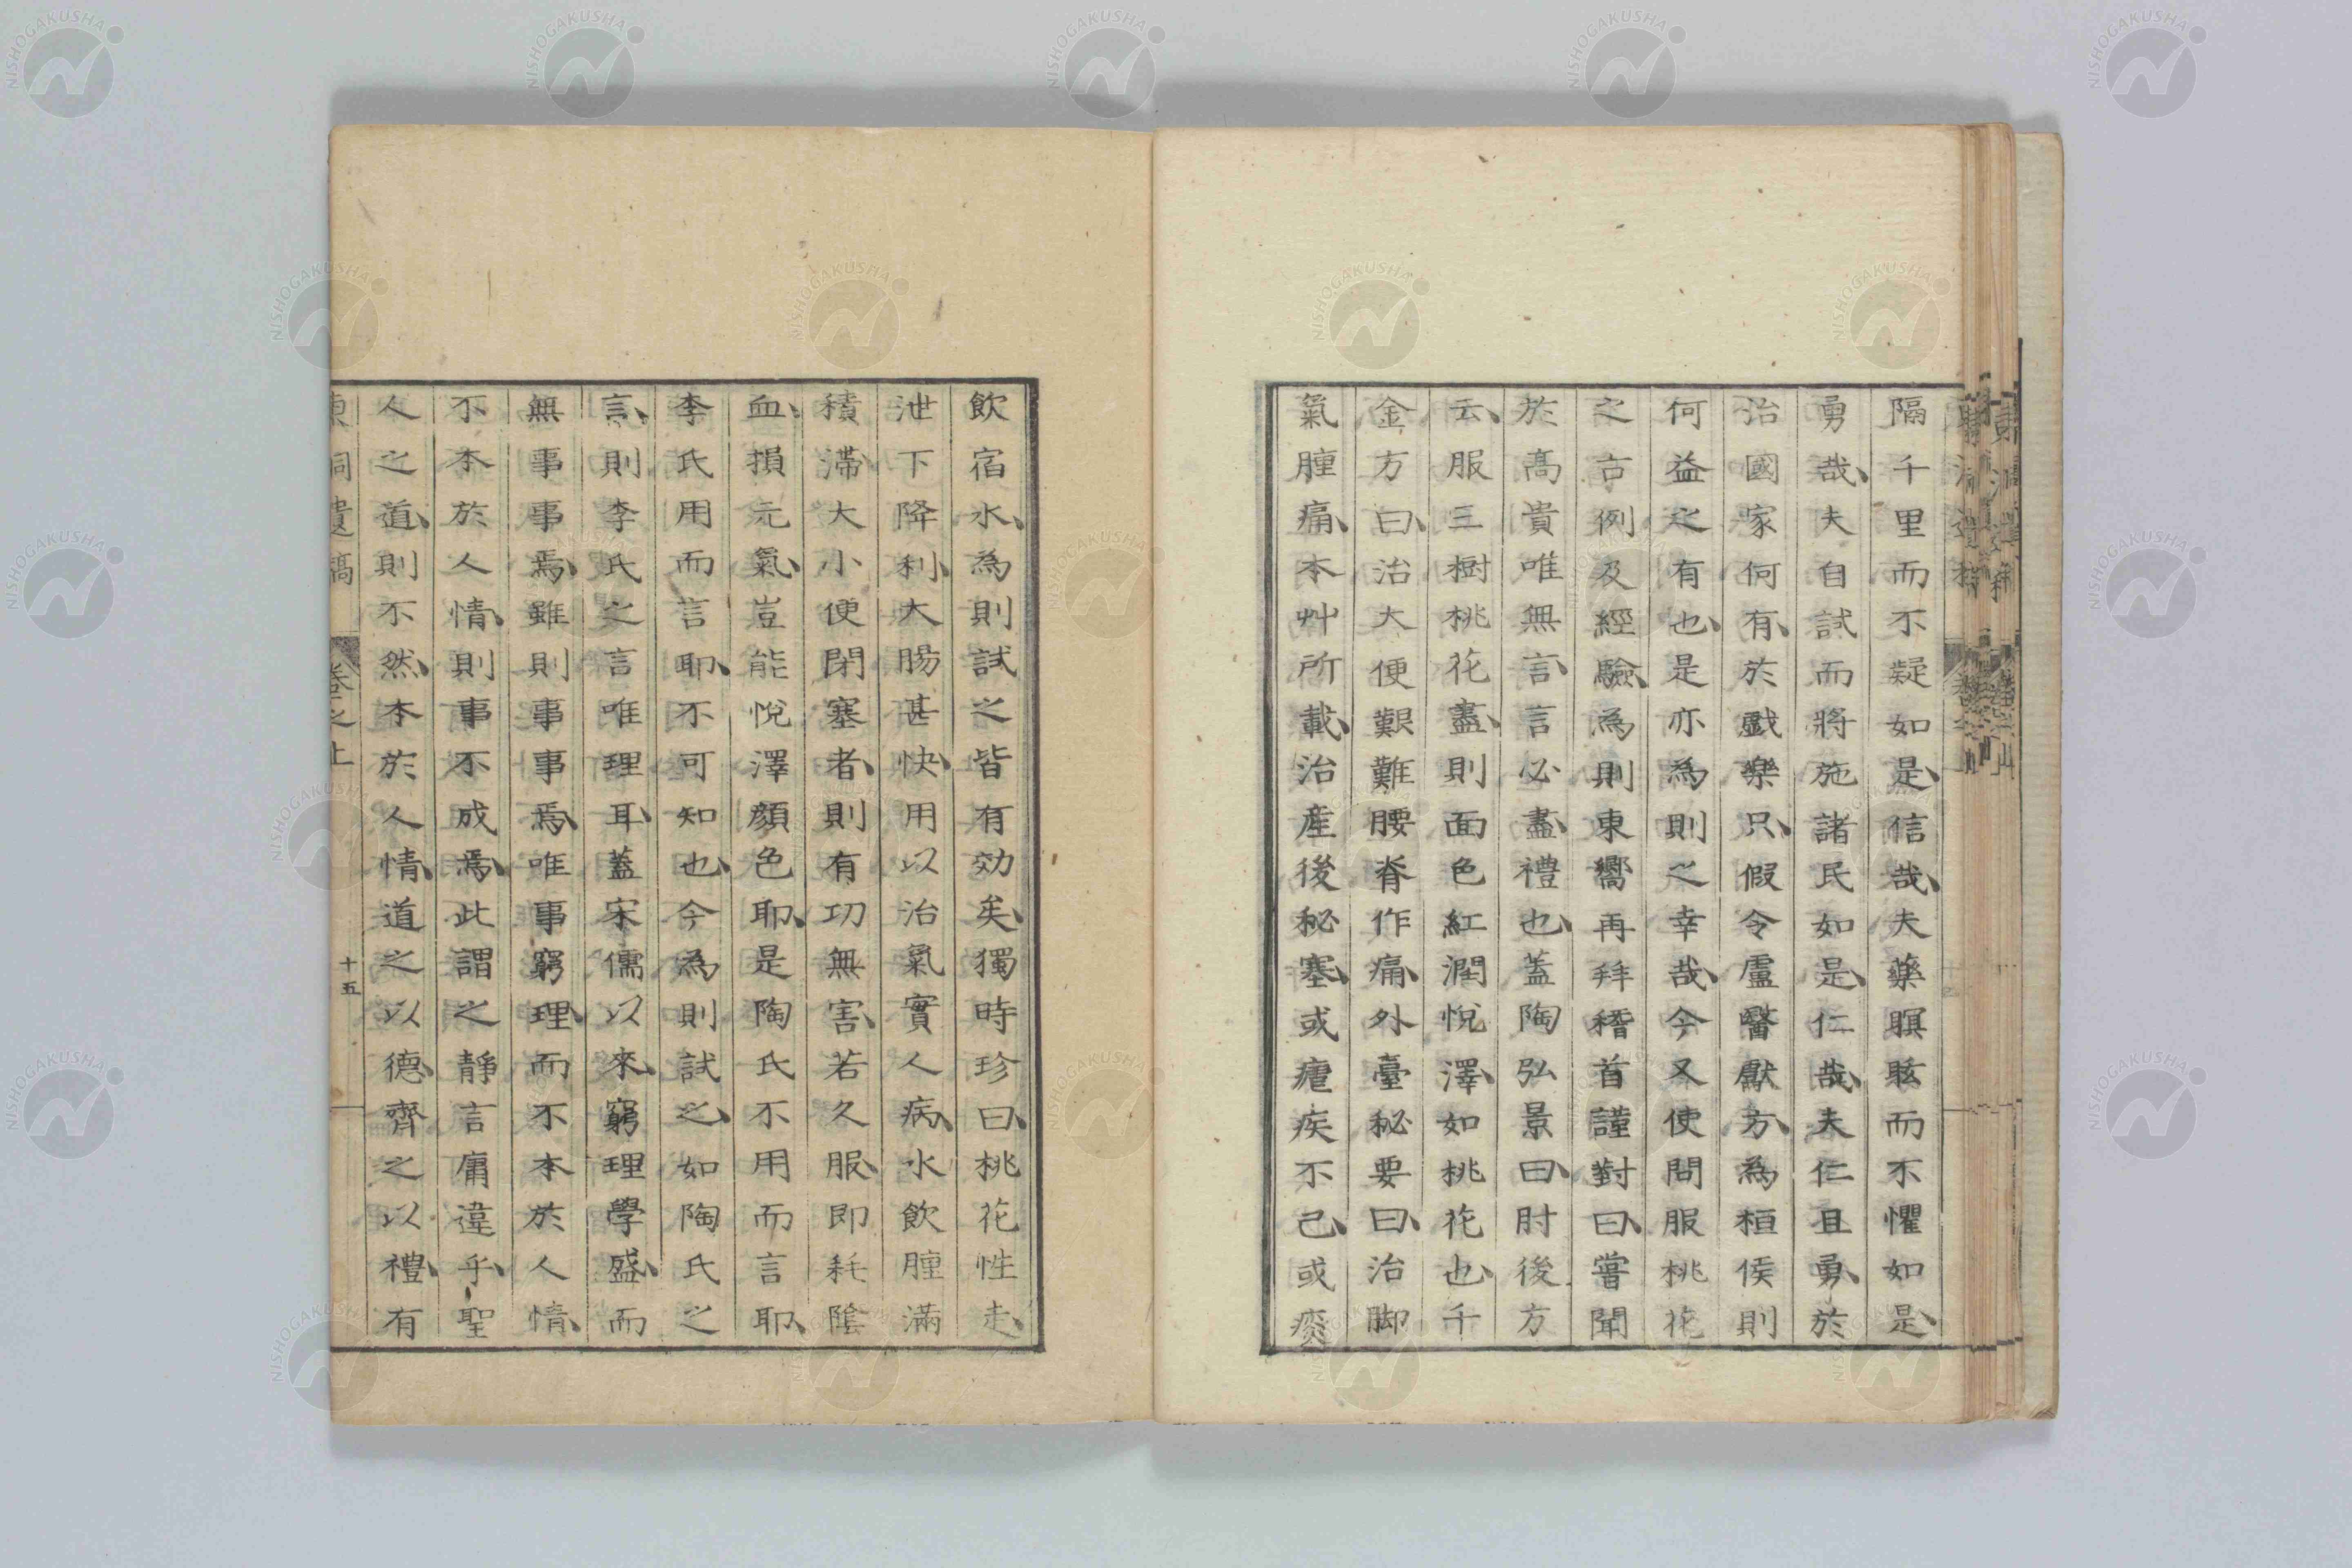 隔千里而不疑如是、信哉、夫藥瞑眩而不懼如是、
勇哉、夫自試而將施諸民如是、仁哉、夫仁且勇、於
治國家何有、於戲樂只、假令盧醫獻方、為桓侯則
何益之有也、是亦為則之幸哉、今又使問服桃花
之古例及經驗、為則東嚮再拜稽首謹對曰、嘗聞
於高貴唯無言、言必盡禮也、蓋陶弘景曰、肘後方
云、服三樹桃花盡、則面色紅潤悅澤、如桃花也、千
金方曰、治大便艱難、腰脊作痛、外臺秘要曰、治脚
氣腫痛、本艸所載、治産後秘塞、或瘧疾不已、或痰
飲宿水、為則試之皆有効矣、獨時珍曰、桃花性走、
泄下降利、大腸甚快、用以治氣實人病、水飲腫滿
積滯、大小便閉塞者、則有功無害、若久服、即耗陰
血、損元氣、豈能悅澤顏色耶、是陶氏不用而言耶、
李氏用而言耶、不可知也、今為則試之、如陶氏之
言、則李氏之言唯理耳、蓋宋儒以來、窮理學盛、而
無事事焉、雖則事事焉、唯事窮理、而不本於人情、
不本於人情、則事不成焉、此謂之靜言庸違乎、聖
人之道、則不然、本於人情、道之以德、齊之以禮、有
東洞遺稿 卷之上 十五
NISHOGAKUSHA